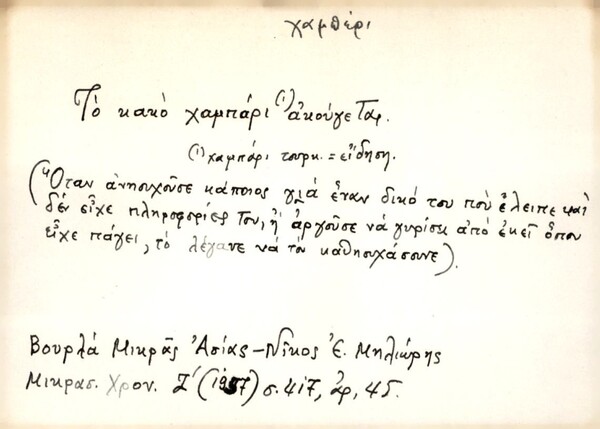 χαμπέρι
Τὸ κακὸ χαμπάρι (1) ἀκούγεται.
(1) χαμπάρι τουρκ. = εἴδηση.
(Ὅταν ἀνησυχοῦσε κάποιος γιὰ ἕναν δικό του ποὺ ἔλειπε καὶ
δὲν εἶχε πληροφορίες του, ἢ ἀργοῦσε νὰ γυρίση ἀπὸ ἐκεῖ ὅπου
εἶχε πάγει, τὸ λέγανε νὰ τὸν καθησυχάσουνε).
Βουρλὰ Μικρᾶς Ἀσίας - Νῖκος Ἐ. Μηλιώρης
Μικρασ. Χρον. Ζ' (1957) σ. 417, ἀρ. 45.